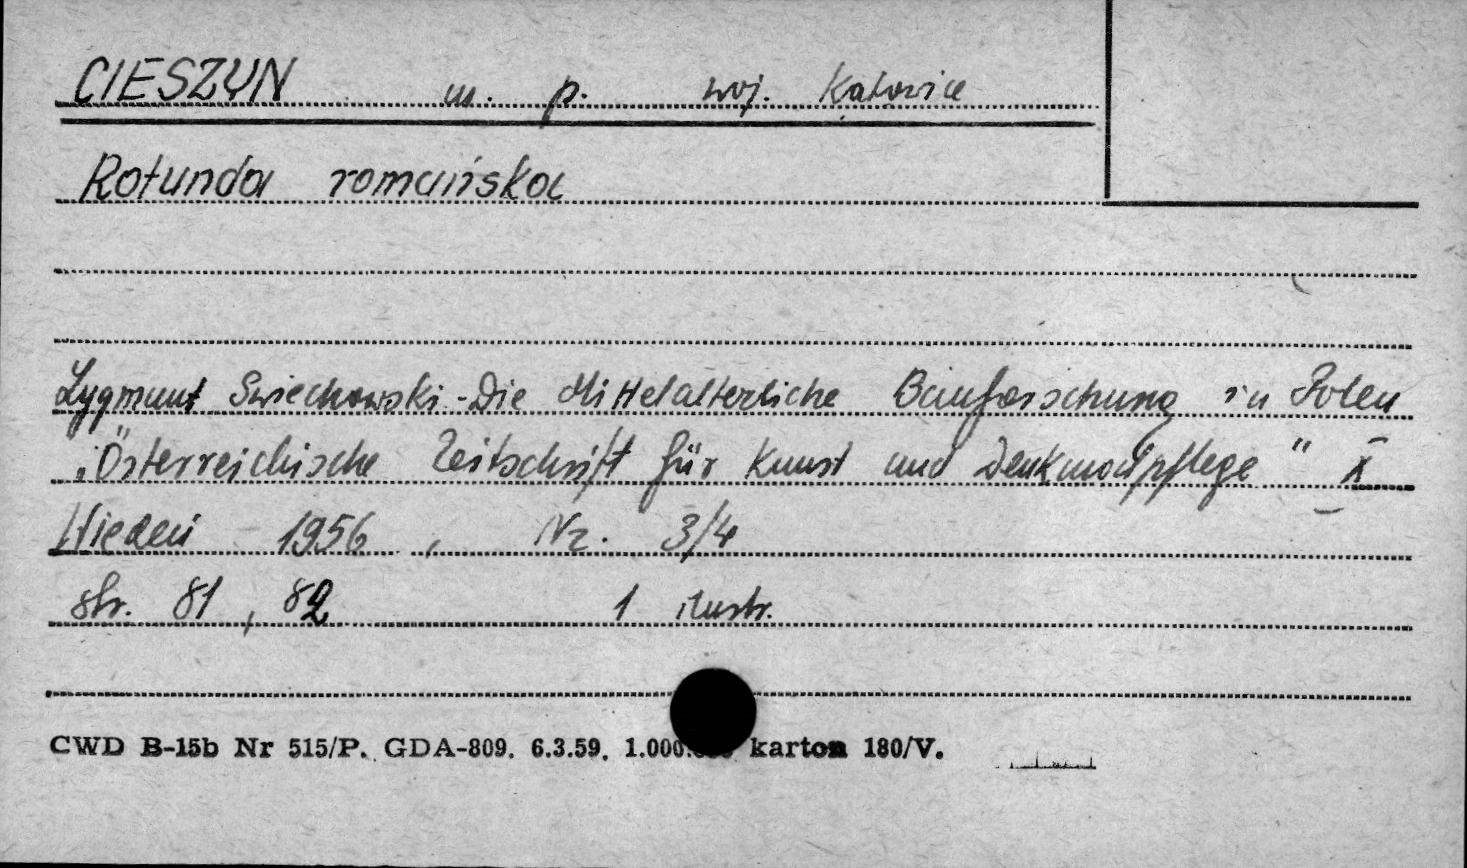 CIESZYN m. p. woj. Katowice
Rotunda romańska
Zygmunt Swiechowski - Die Mittelalterliche Bauforschung in Polen
„Österreichische Zeitschrift für Kunst und Denkmalpflege" X
Wiedeń - 1956, Nr. 3/4
str. 81, 82 1 ilustr.
CWD B-15b Nr 515/P. GDA-809. 6.3.59. 1.000. karton 180/V.